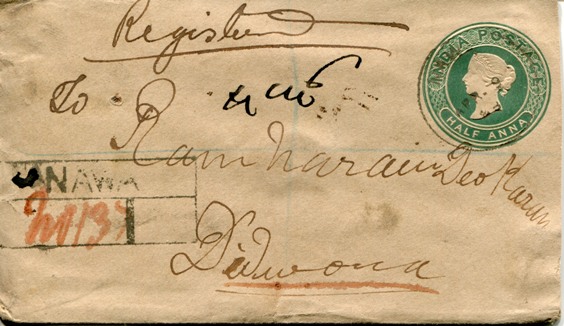 Registered
INDIA POSTAGE
HALF ANNA
To
Ram Narain Deo Karan
NAWA
Didwana